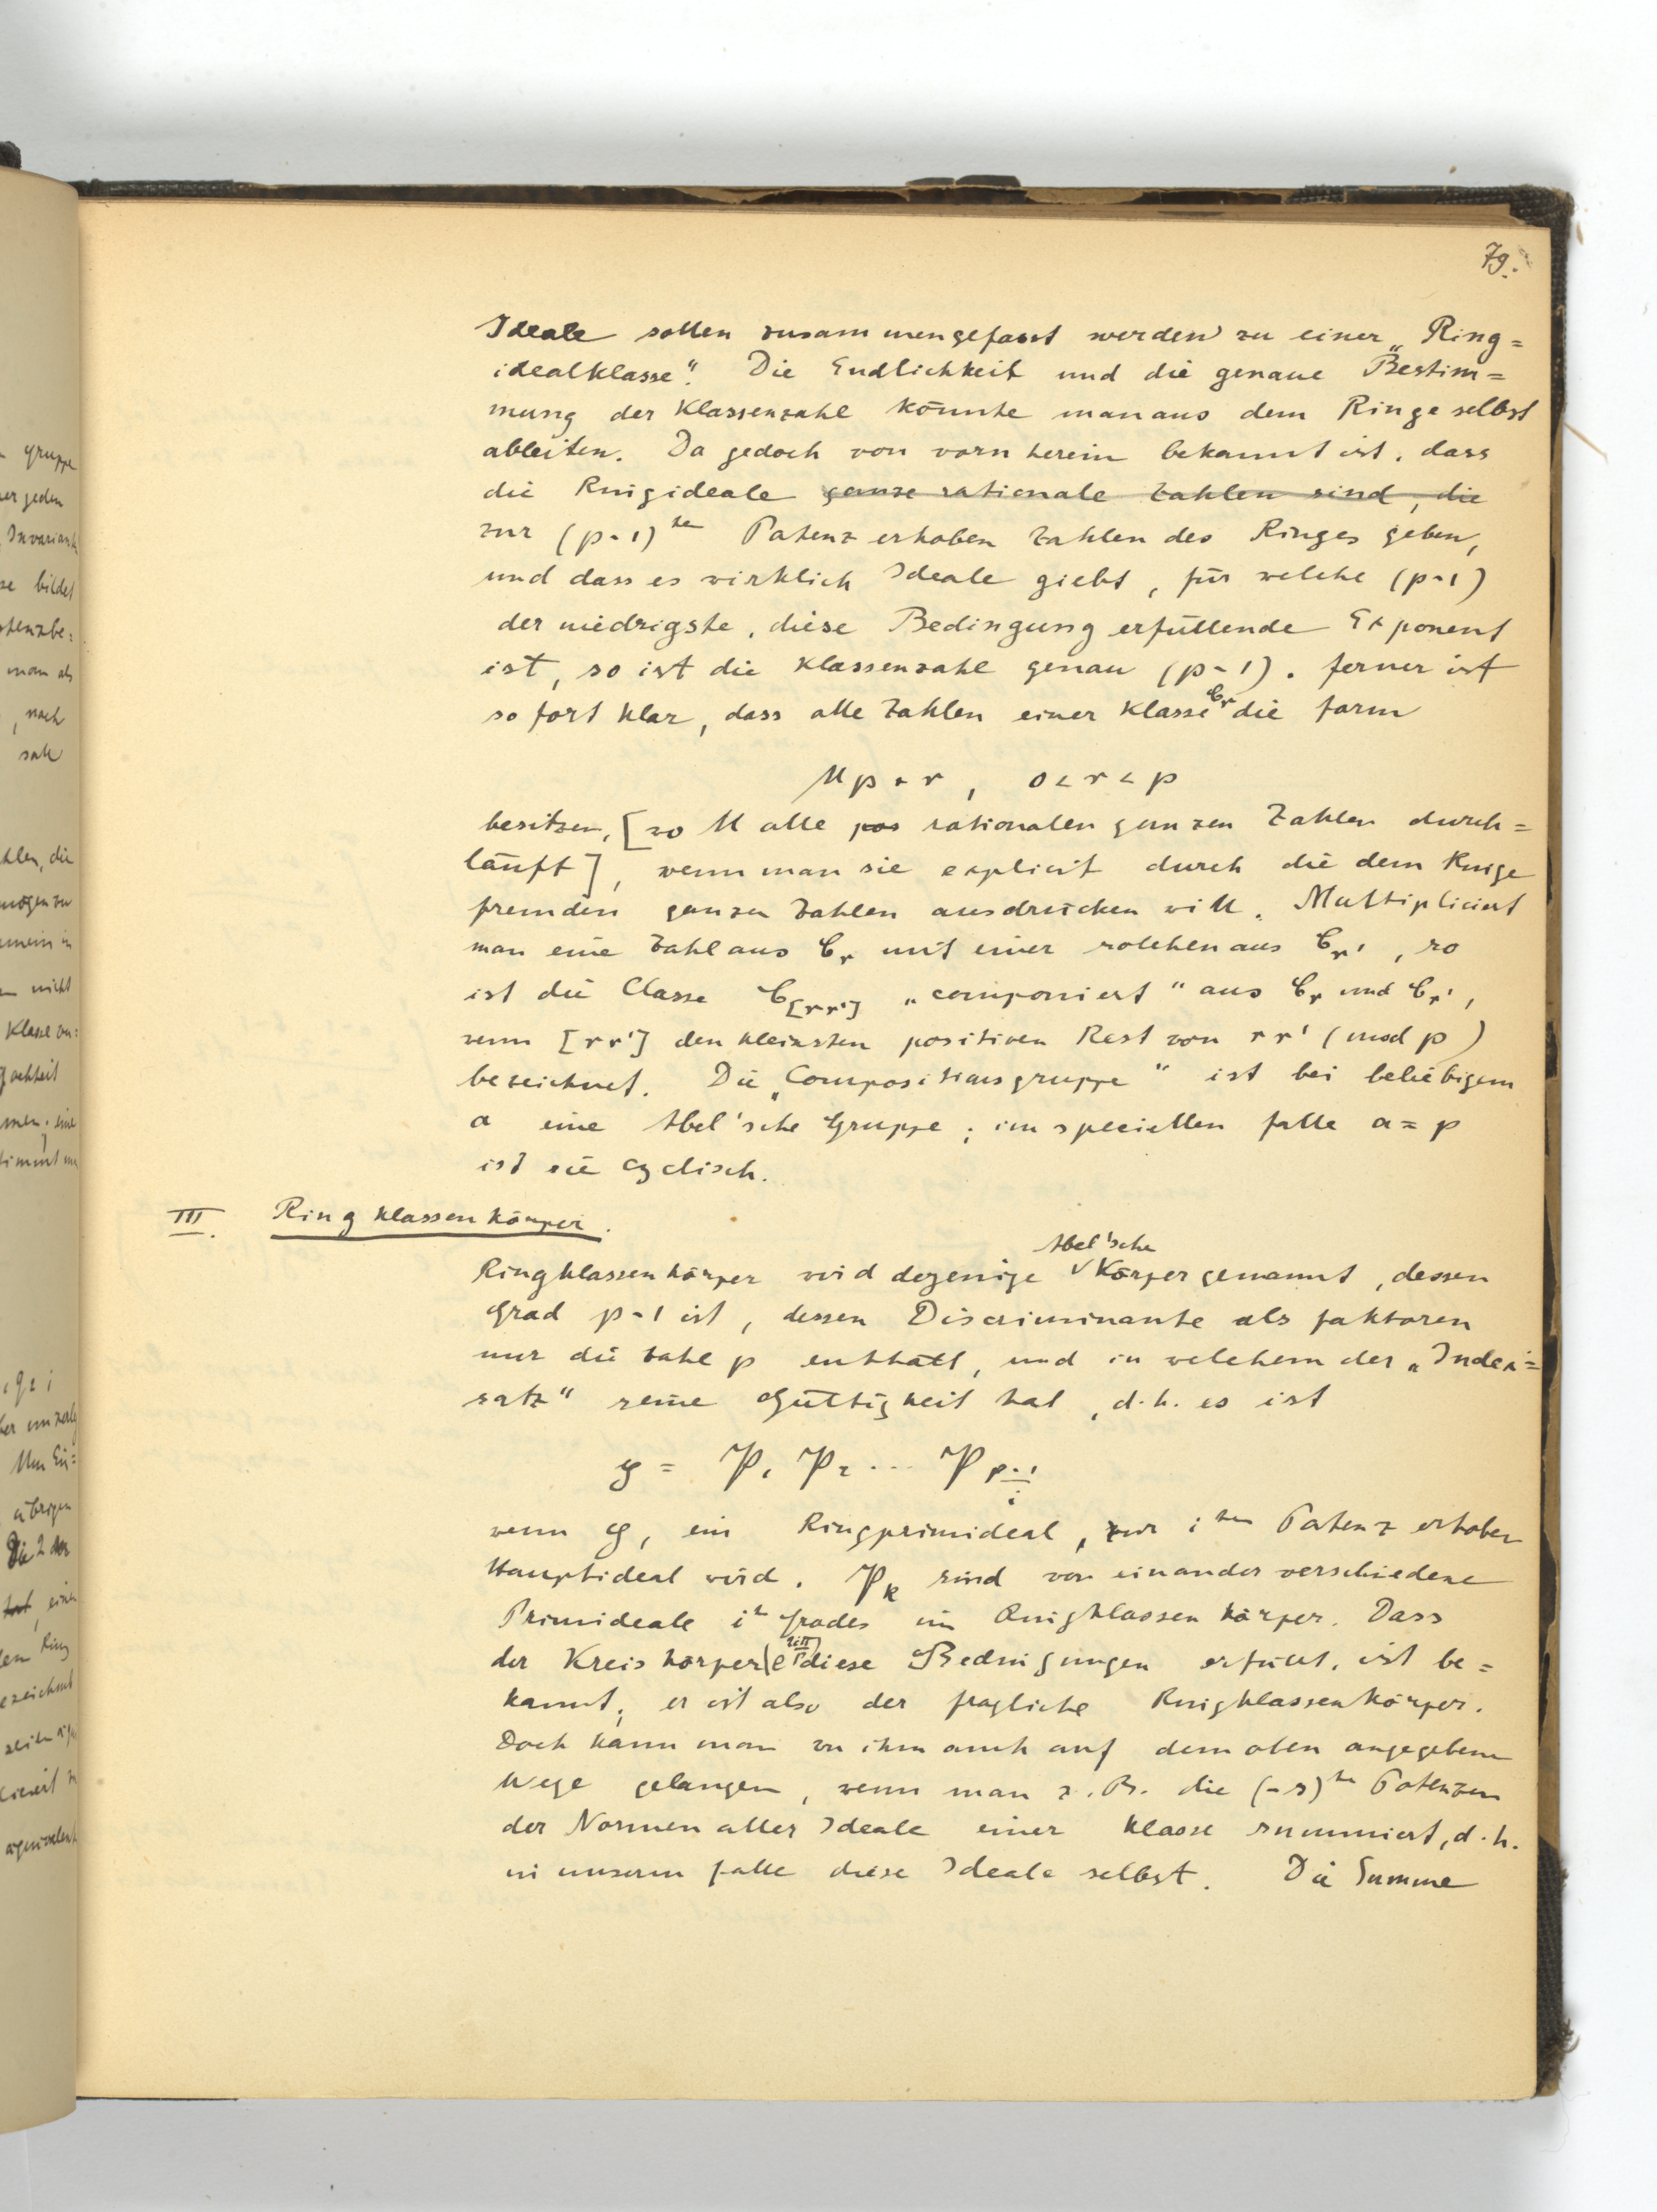 79.
Ideale sollen zusammengefasst werden zu einer „Ring=
idealklasse“. Die Endlichkeit und die genaue Bestim=
mung der Klassenzahl könnte man aus dem Ringe selbst
ableiten. Da gedoch von vorn herein bekannt ist, dass
die Ringideale ganze rationale Zahlen sind, die
zur (p-1)ten Potenz erhoben Zahlen des Ringes geben,
und dass es wirklich Ideale giebt, für welche (p-1)
der niedrigste, diese Bedingung erfüllende Exponent
ist, so ist die Klassenzahl genau (p-1). Ferner ist
sofort klar, dass alle Zahlen einer Klasse C_r die Form
Mp+r, 0<r<p
besitzen, [wo M alle pos rationalen ganzen Zahlen durch=
läuft], wenn man sie explicit durch die dem Ringe
fremden ganzen Zahlen ausdrücken will. Multipliciert
man eine Zahl aus C_r mit einer solchen aus C_r', so
ist die Classe C_[rr'] „componiert“ aus C_r und C_r',
wenn [rr'] den kleinsten positiven Rest von rr' (mod p)
bezeichnet. Die „Compositionsgruppe“ ist bei beliebigem
a eine Abel'sche Gruppe; im speciellen Falle a=p
ist sie cyclisch.
III. Ringklassenkörper.
Ringklassenkörper wird dejenige Abel'sche Körper genannt, dessen
Grad p-1 ist, dessen Discriminante als Faktoren
nur die Zahl p enthält, und in welchem der „Index=
satz“ seine Gültigkeit hat, d.h. es ist
y = P_1 P_2 ... P_(p-1)/i
wenn y, ein Ringprimideal, zur iten Potenz erhoben
Hauptideal wird. P_k sind von einander verschiedene
Primideale in Grades im Ringklassenkörper. Dass
der Kreiskörper (e^(2iπ/p)) diese Bedingungen erfüllt, ist be=
kannt; er ist also der fragliche Ringklassenkörper.
Doch kann man zu ihm auch auf dem oben angegebenen
Wege gelangen, wenn man z.B. die (-s)ten Potenzen
der Normen aller Ideale einer Klasse summiert, d.h.
in unserm Falle diese Ideale selbst. Die Summe